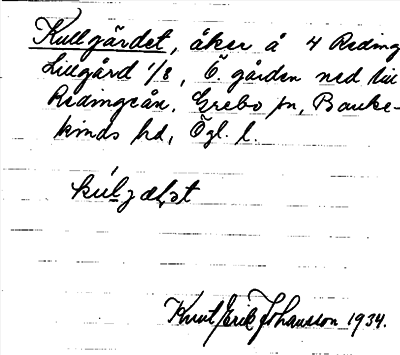 Kullgärdet, åker å 4 Reding
Lillgård 1/8, Ö gården ned till
Redingeån, Grebo sn, Banke-
kinds hd, Ögl. l.
Knut Erik Johansson 1934.